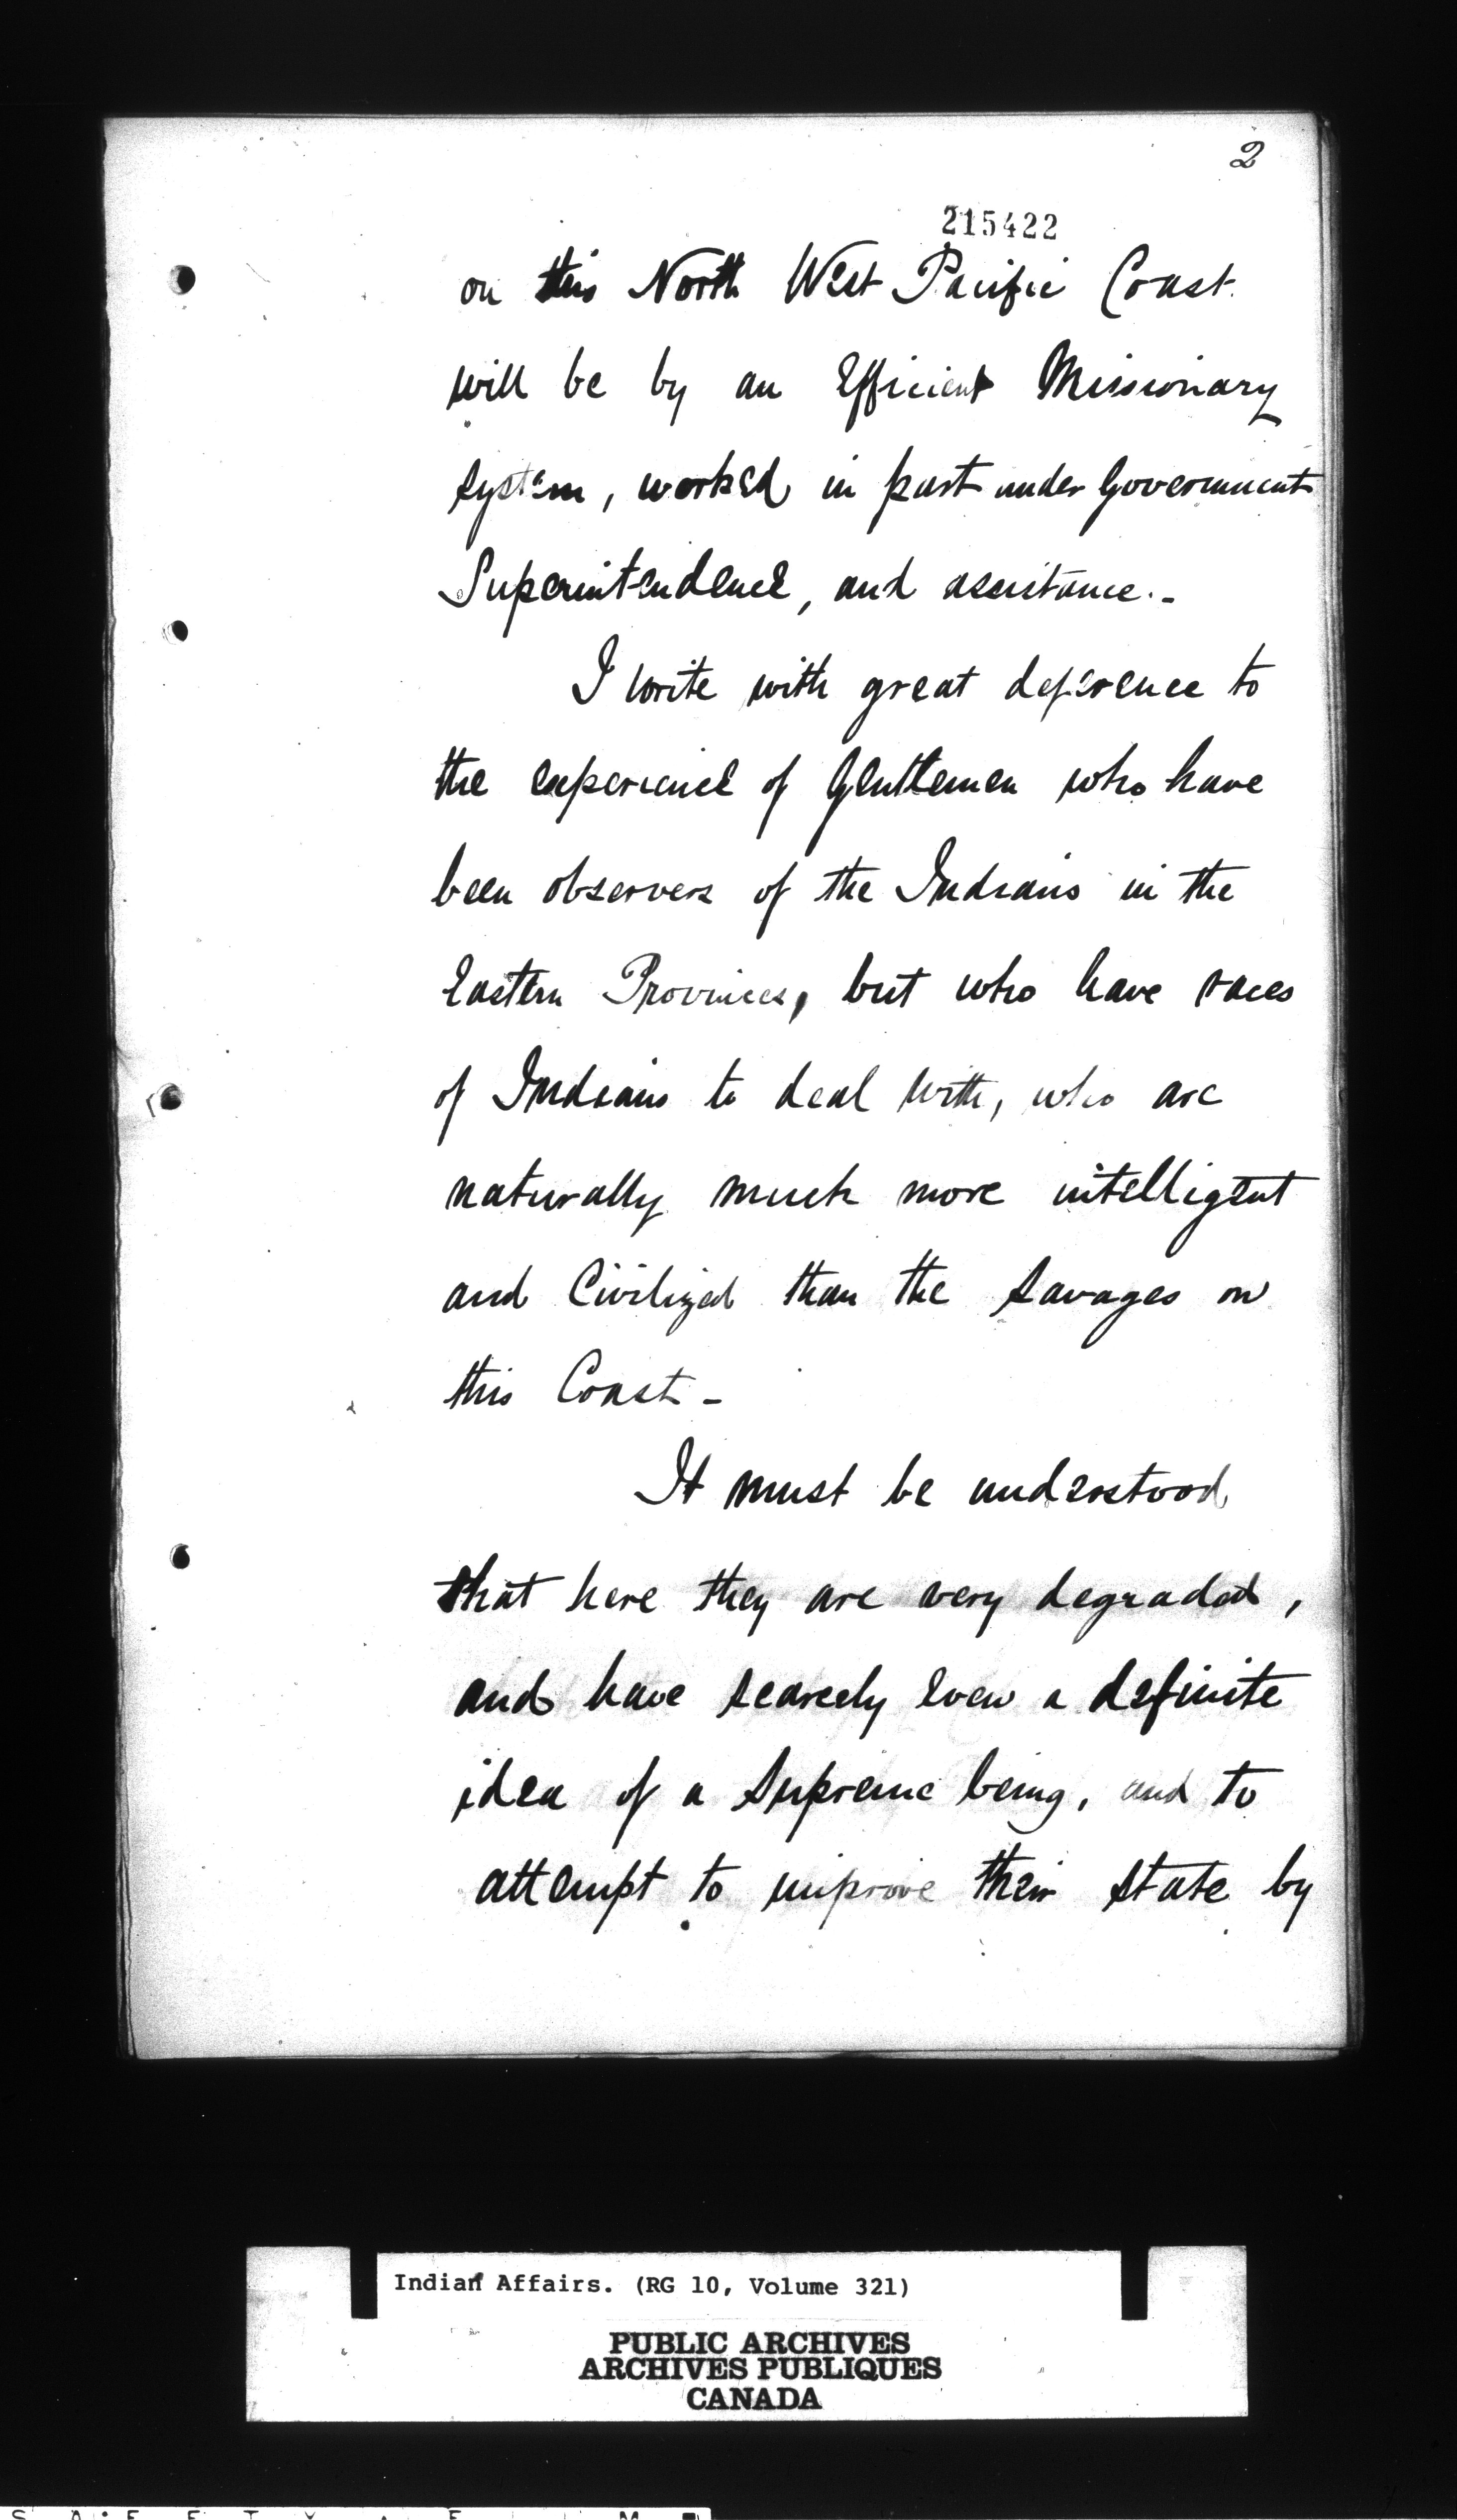 2
215422
on this North West Pacific Coast
will be by an Efficient Missionary
system, worked in part under Government
Superintendence, and assistance.-
I write with great deference to
the experience of Gentlemen who have
been observers of the Indians in the
Eastern Provinces, but who have races
of Indians to deal with, who are
naturally much more intelligent
and Civilized than the Savages on
this Coast -
It must be understood
that here they are very degraded,
and have scarcely even a definite
idea of a Supreme being, and to
attempt to improve their state by
Indian Affairs. (RG 10, Volume 321)
PUBLIC ARCHIVES
ARCHIVES PUBLIQUES
CANADA